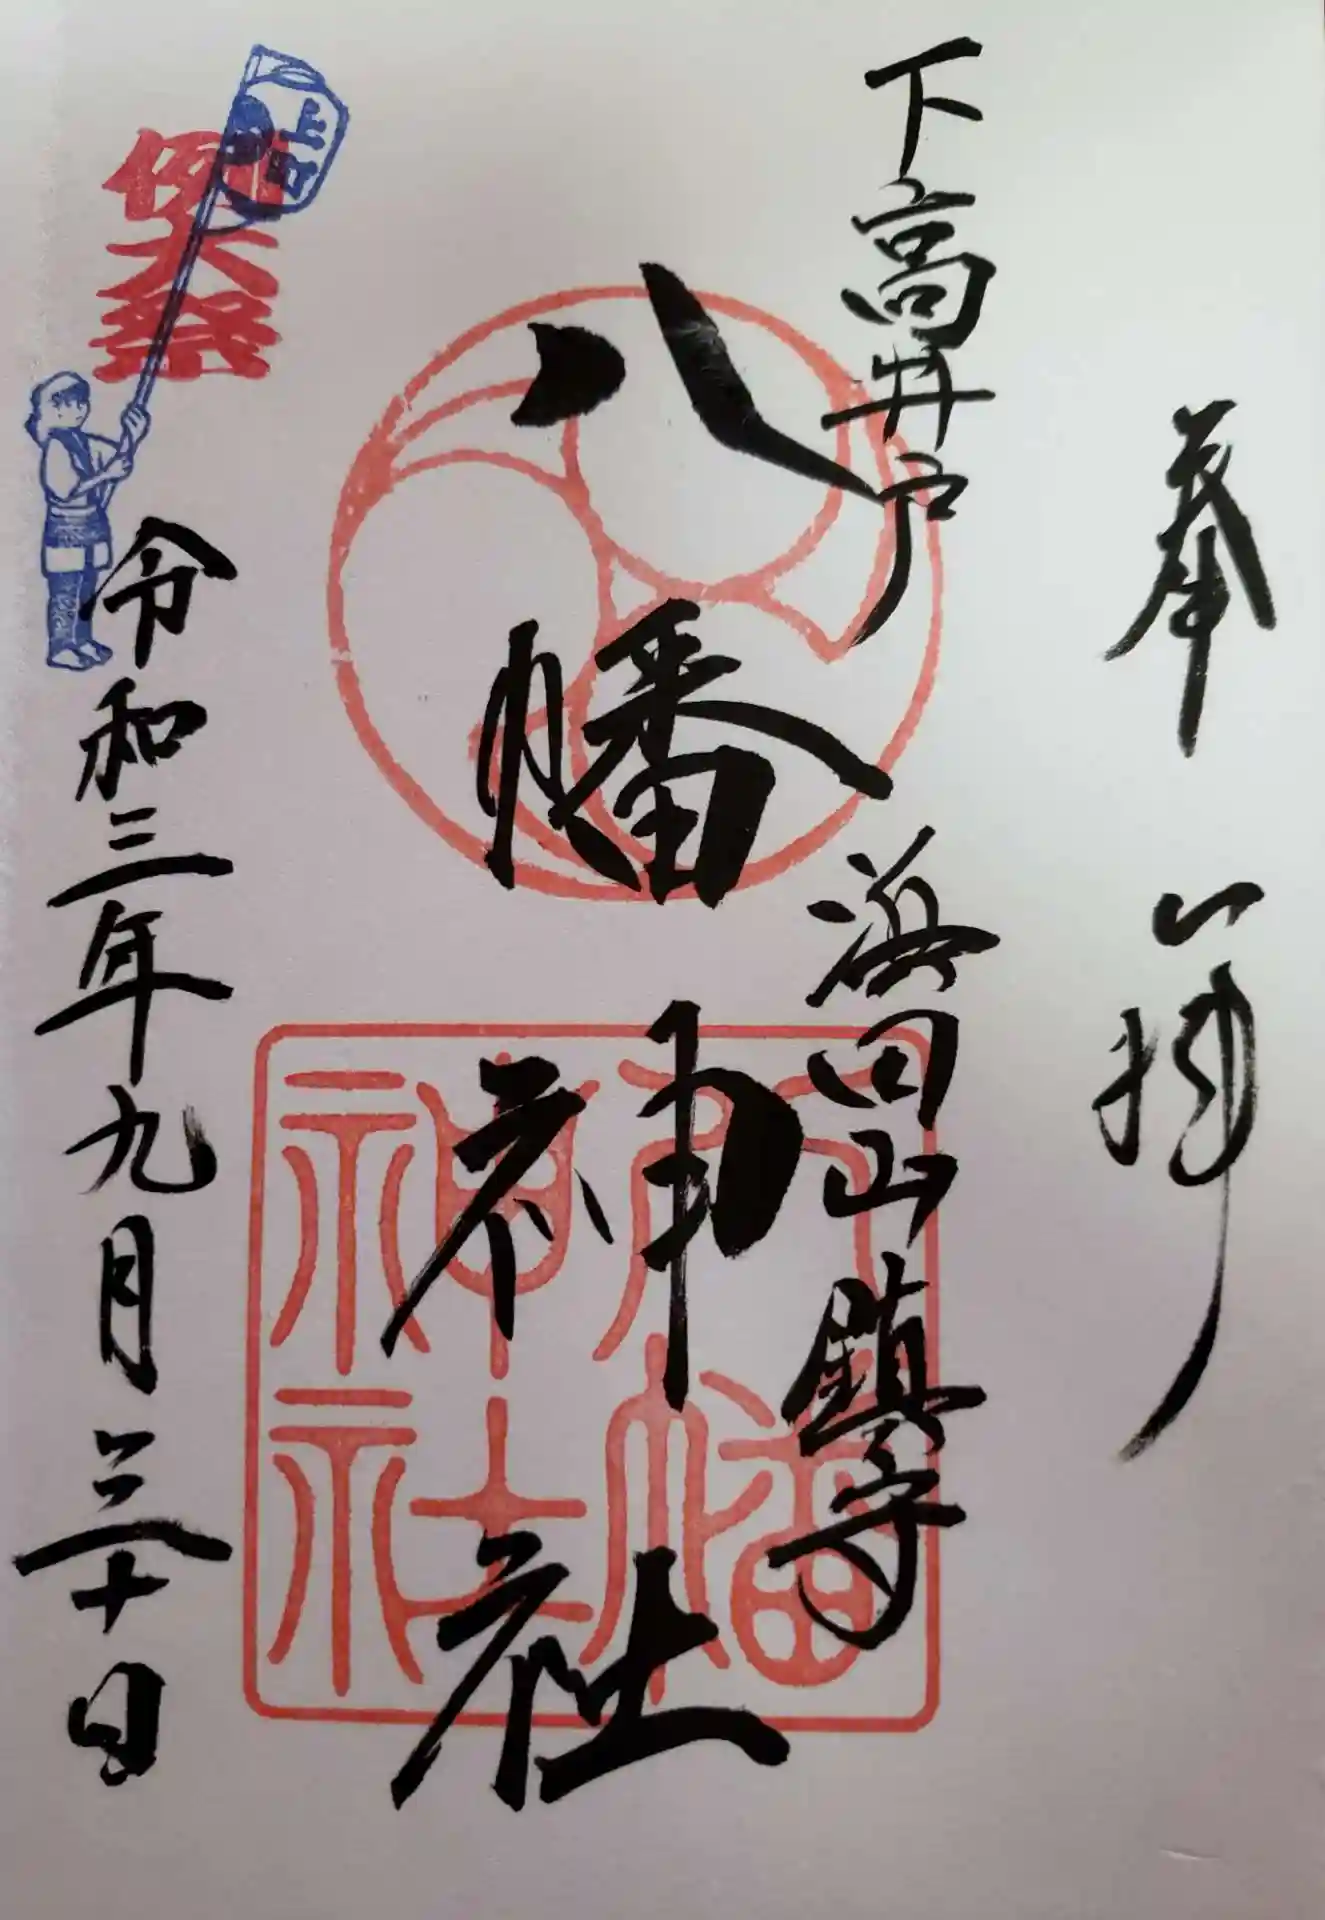 奉拝
下高井戸
浜田山鎮守
八幡神社
八幡神社
令和三年九月三十日
大祭
上町